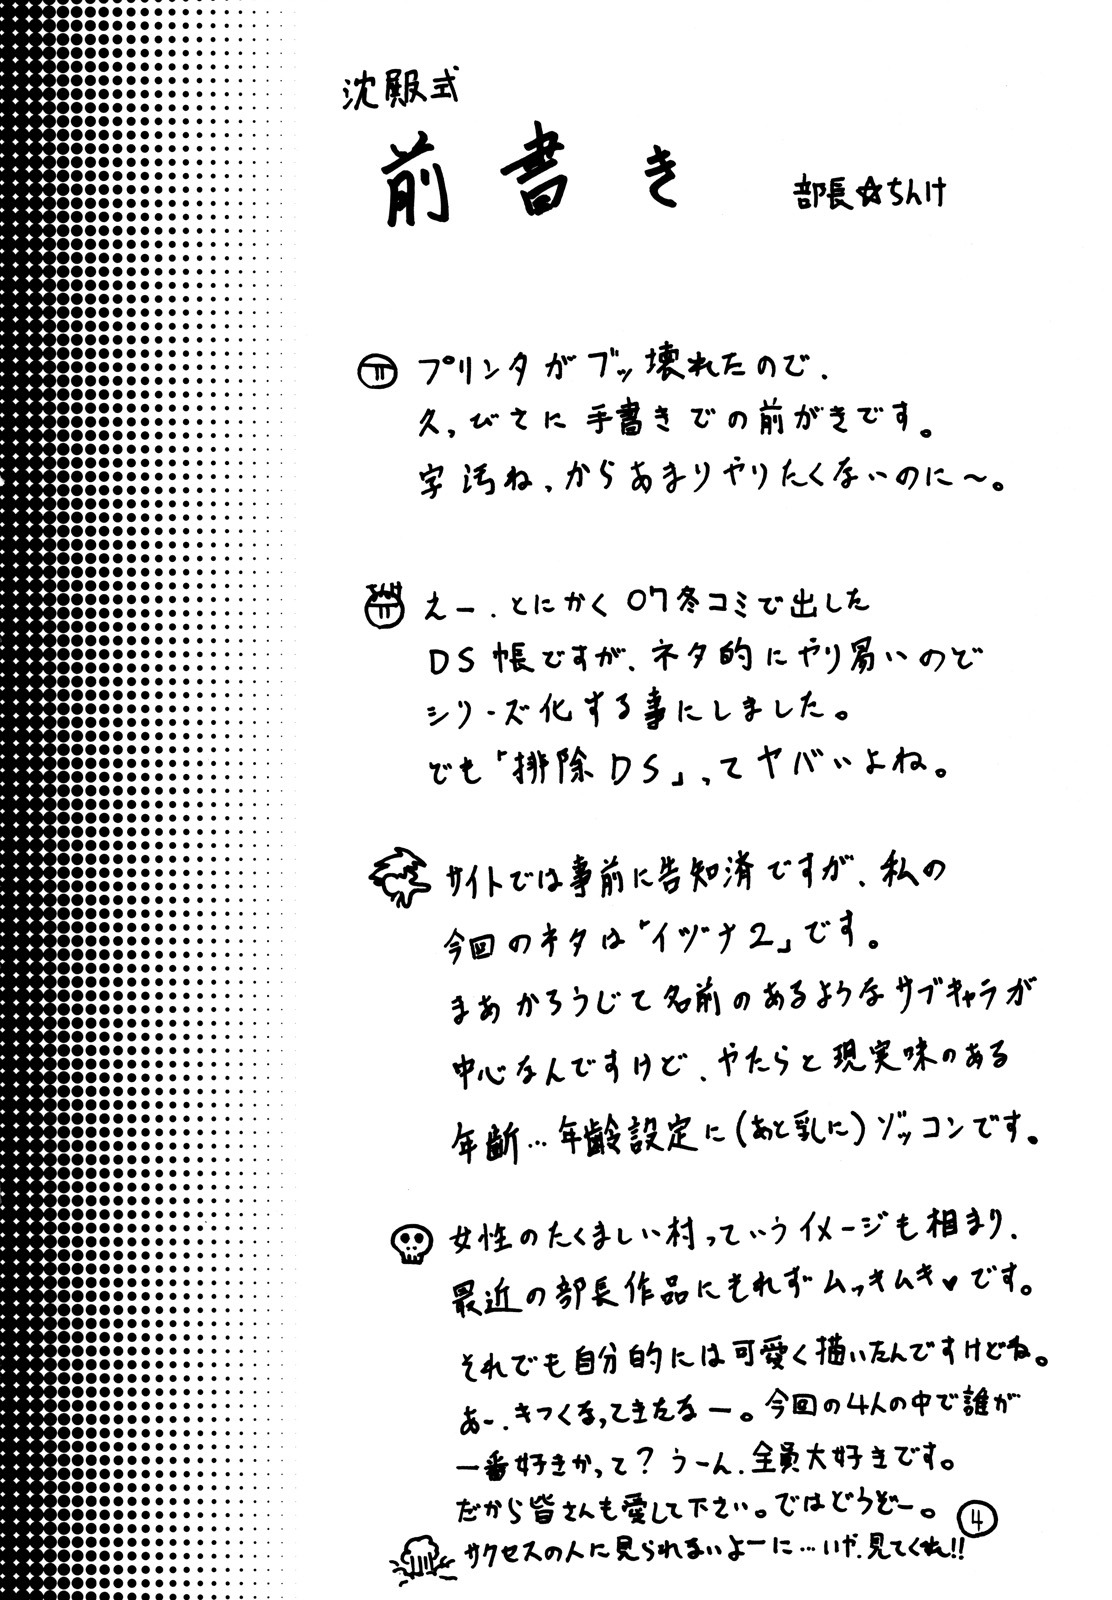 沈殿式
前書き
部長☆ちんけ
プリンタがブッ壊れたので、
久っびさに手書きでの前がきです。
字汚ねっからあまりやりたくないのに〜。
えー、とにかく07冬コミで出した
DS帳ですが、ネタ的にやり易いので
シリーズ化する事にしました。
でも「排除DS」ってヤバいよね。
サイトでは事前に告知済ですが、私の
今回のネタは「イヅナ2」です。
まあかろうじて名前のあるようなサブキャラが
中心なんですけど、やたらと現実味のある
年齢…年齢設定に(あと乳に)ゾッコンです。
女性のたくましい村っていうイメージも相まり、
最近の部長作品にもれずムっきムき♥です。
それでも自分的には可愛く描いたんですけどね。
あ〜、きつくなってきたなー。今回の4人の中で誰が
一番好きかって?うーん、全員大好きです。
だから皆さんも愛して下さい。ではどうぞー。
サクセスの人に見られないよーに…いや、見てくれ!!
4